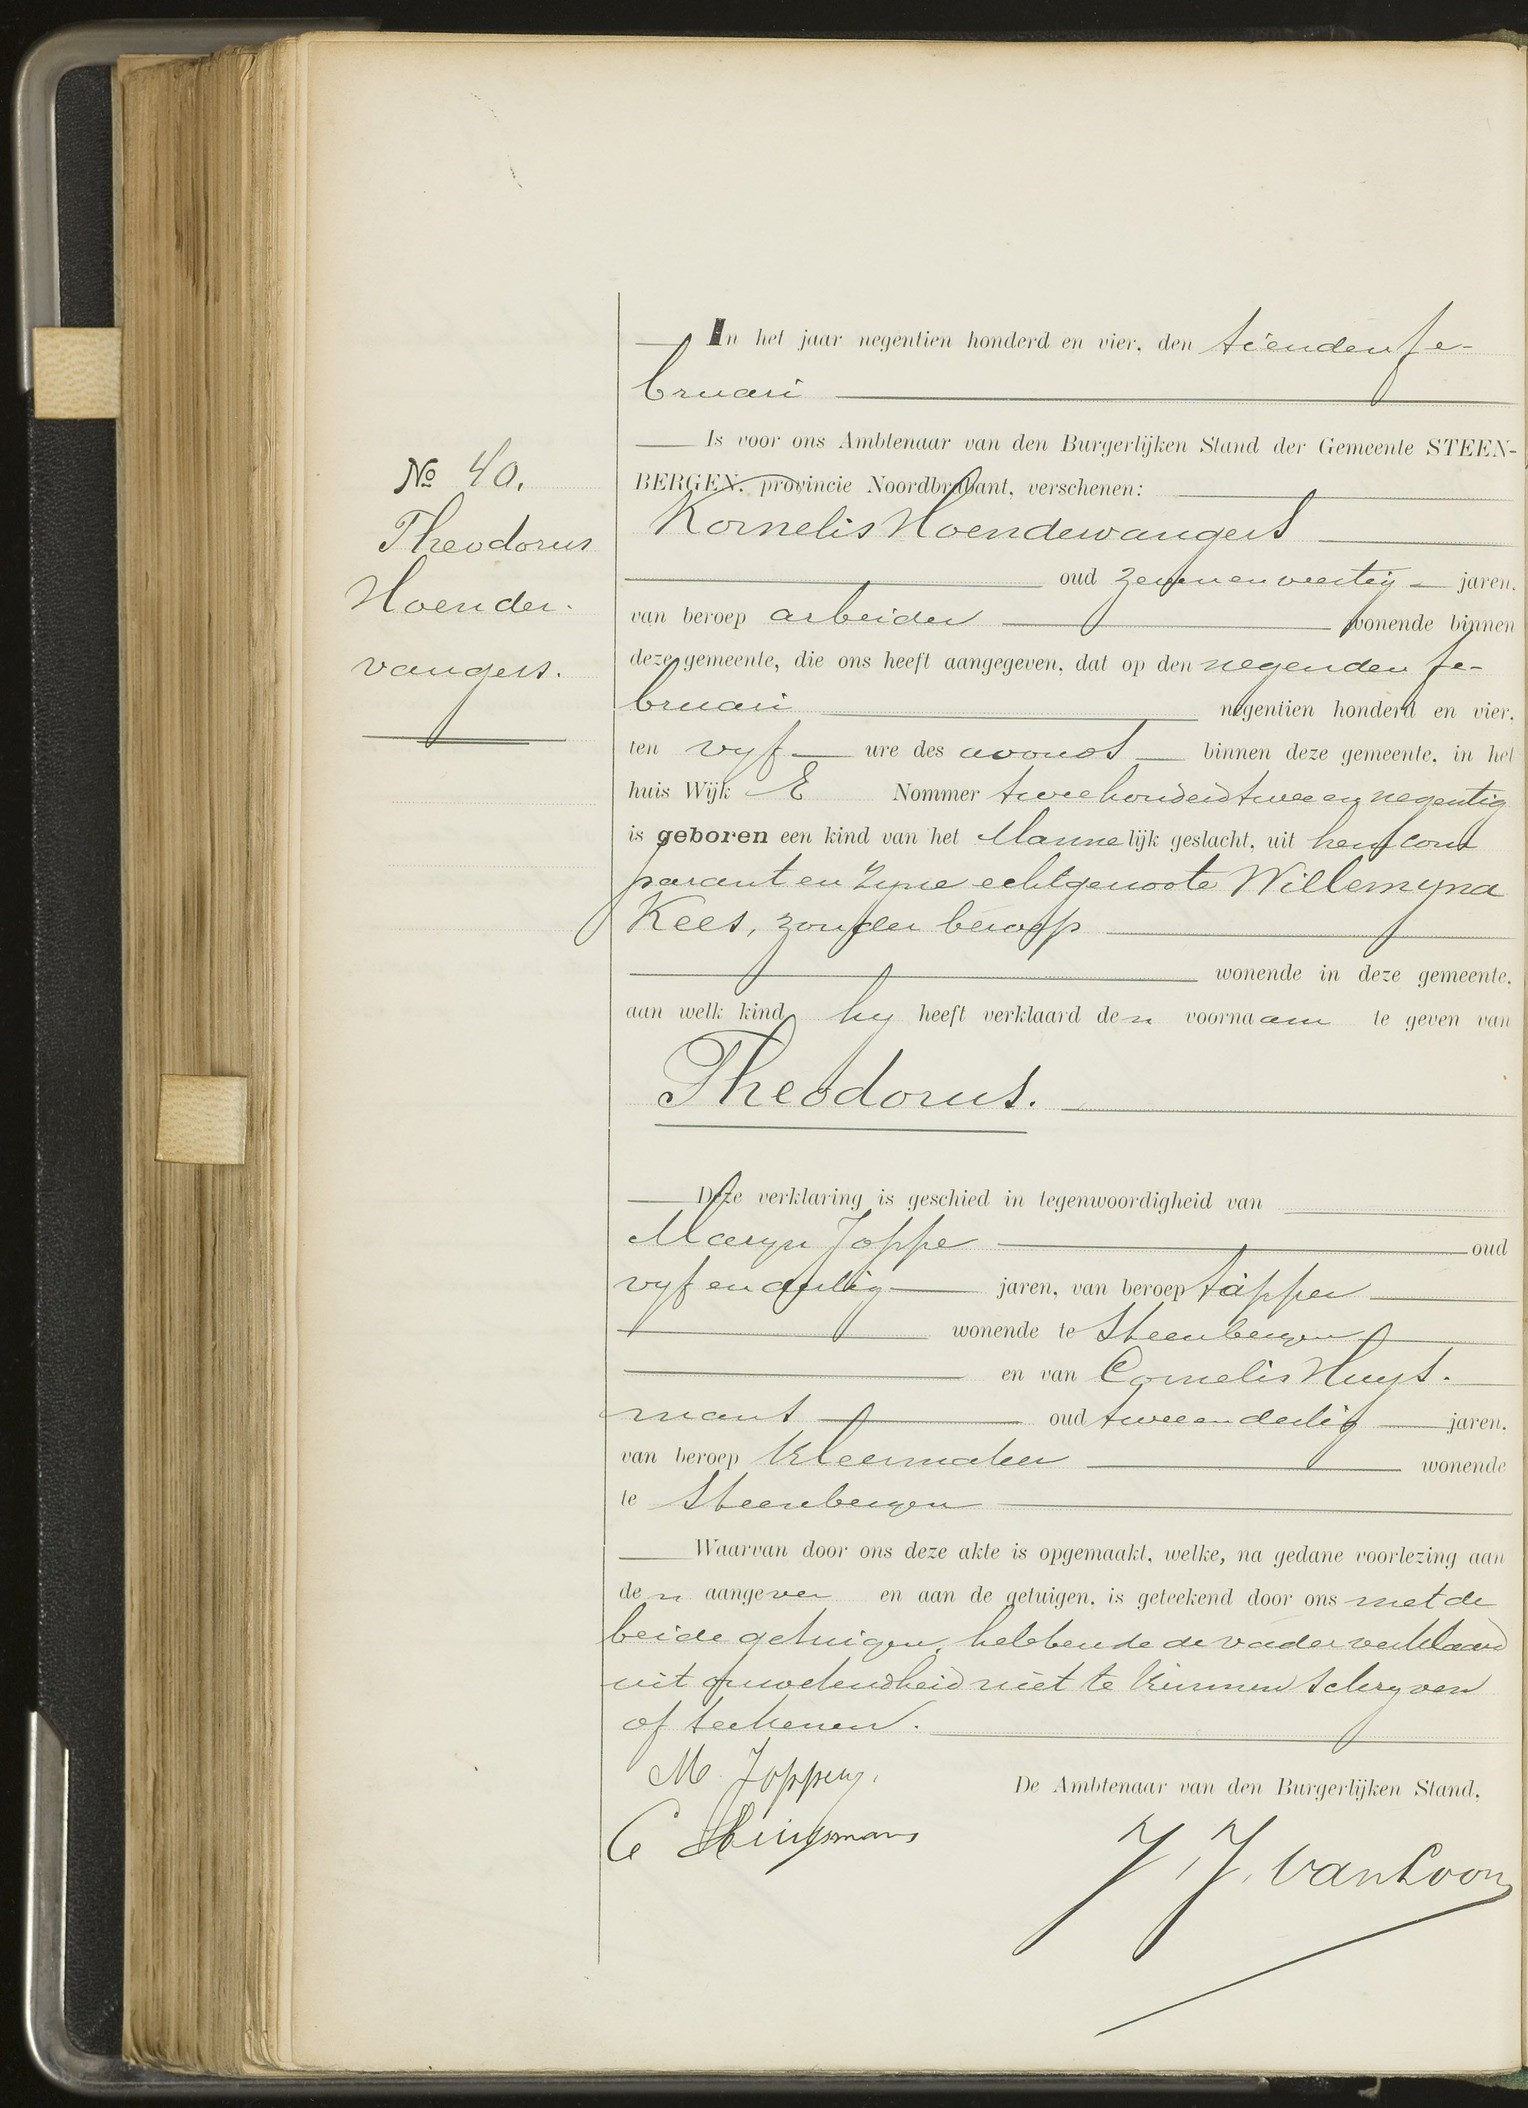 № 40.
Theodorus
Hoender-
vangers.
In het jaar negentien honderd en vier, den tienden Fe-
bruari
Is voor ons Ambtenaar van den Burgerlijken Stand der Gemeente STEEN-
BERGEN, provincie Noordbrabant, verschenen:
Kornelis Hoendervangers
oud zevenenveertig jaren,
van beroep arbeider wonende binnen
deze gemeente, die ons heeft aangegeven, dat op den negenden Fe-
bruari negentien honderd en vier,
ten vyf ure des avonds binnen deze gemeente, in het
huis Wijk E Nommer tweehonderdtweeennegentig
is geboren een kind van het Mannelijk geslacht, uit hem com
parant en zyne echtgenoote Willemyna
Kees, zonder beroep
wonende in deze gemeente,
aan welk kind hy heeft verklaard den voornaam te geven van
Theodorus.
Deze verklaring is geschied in tegenwoordigheid van
Maryn Joppe oud
vyfendertig jaren, van beroep tapper
wonende te Steenbergen
en van Cornelis Huys-
mans oud tweeendertig jaren,
van beroep kleermaker wonende
te Steenbergen
Waarvan door ons deze akte is opgemaakt, welke, na gedane voorlezing aan
den aangever en aan de getuigen, is geteekend door ons met de
beide getuigen, hebbende de vader verklaard
uit onwetendheid niet te kunnen schryven
of teekenen.
M. Joppe
De Ambtenaar van den Burgerlijken Stand,
C Huijsmans
J. J. van Loon